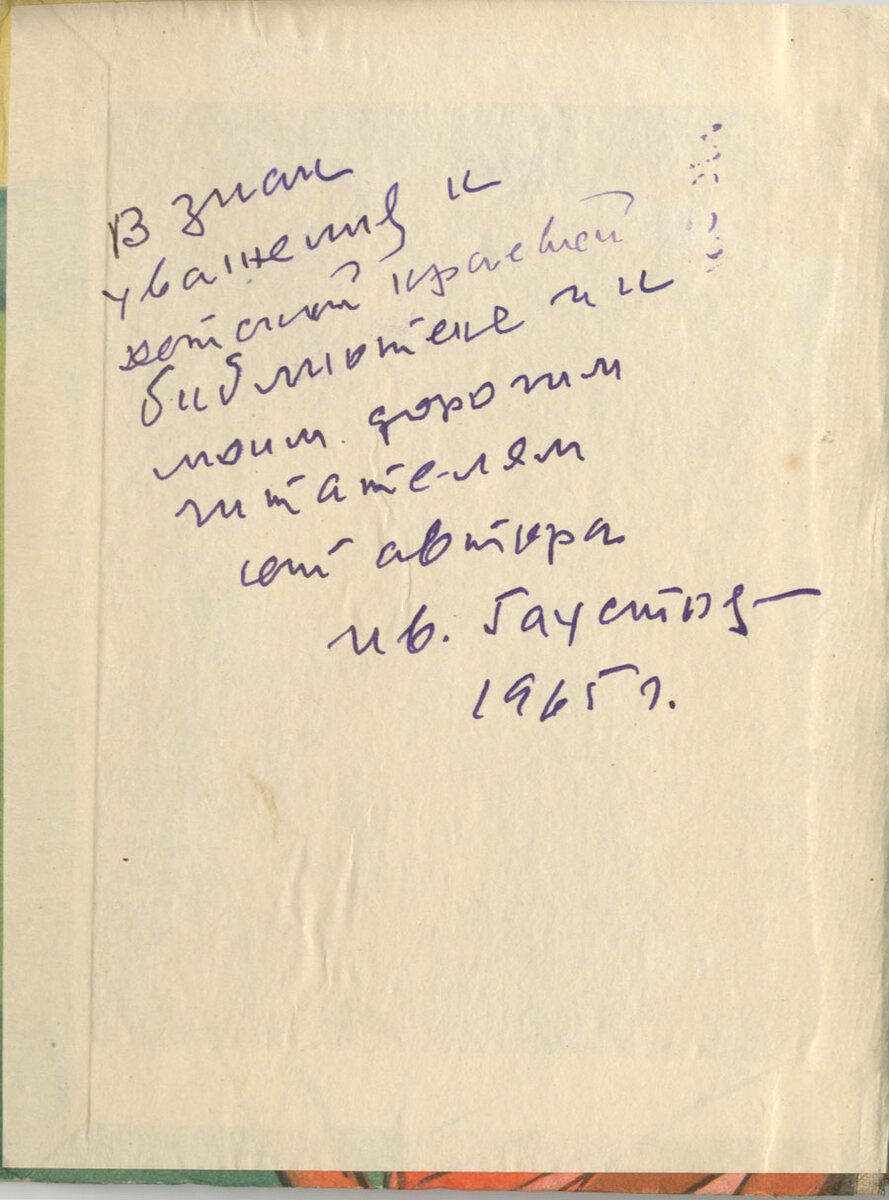 В знак
уважения к
детской краевой
библиотеке и к
моим дорогим
читателям
от автора
Ив. Баустов
1965 г.